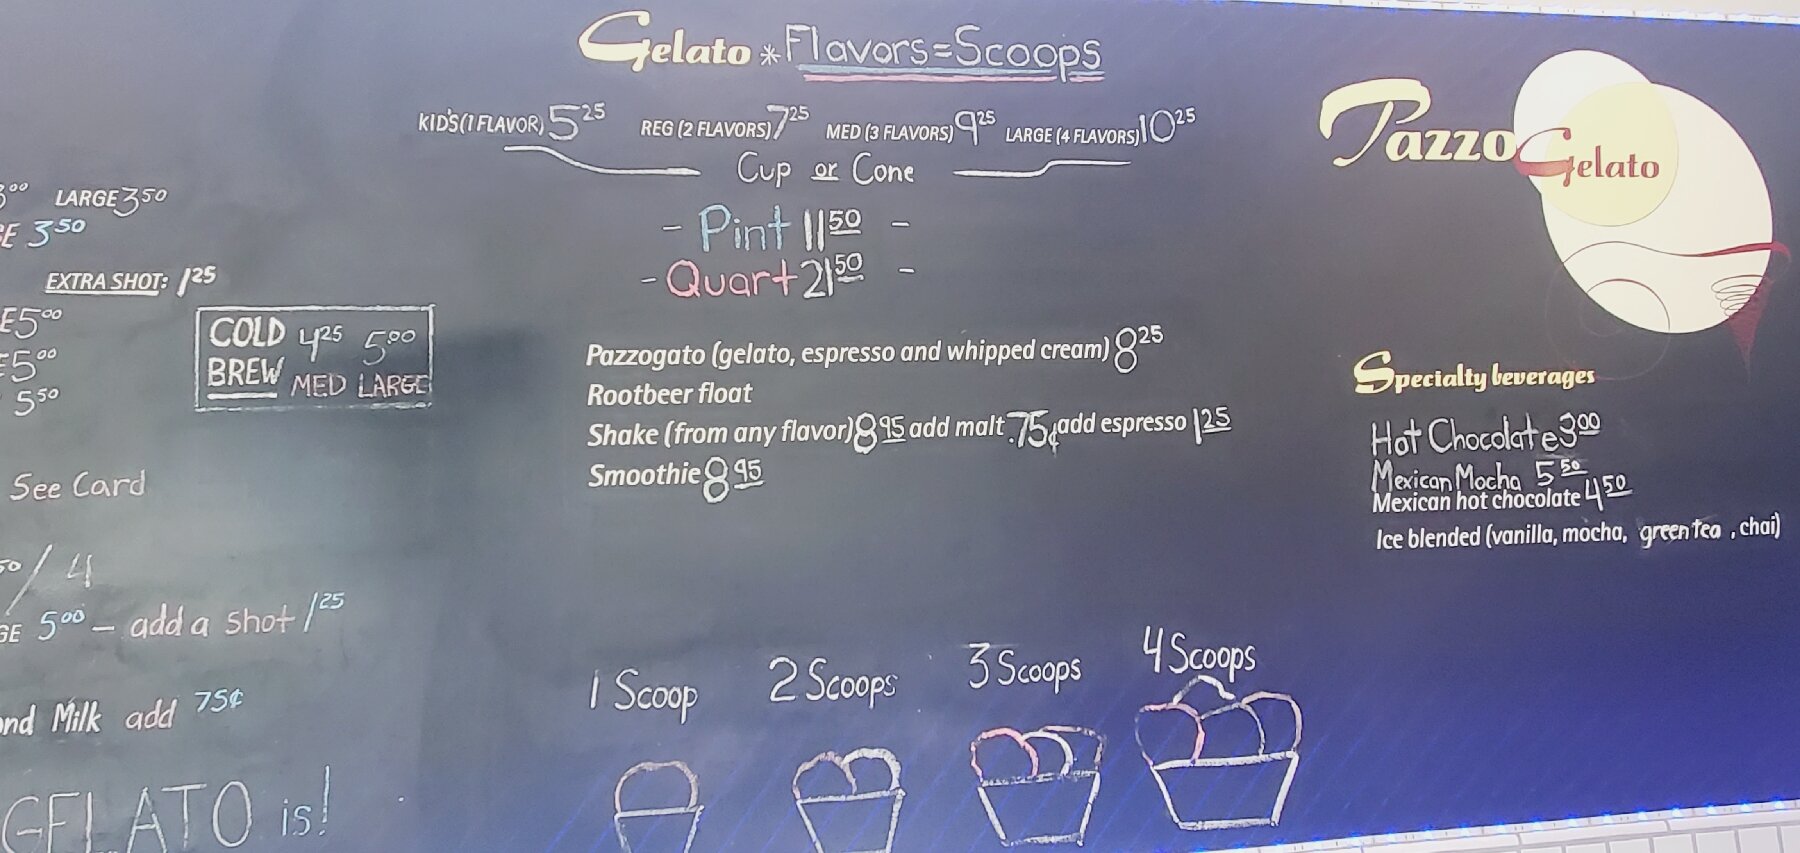 Gelato *Flavors=Scoops
KID'S(1 FLAVOR) 5.25 REG (2 FLAVORS) 7.25 MED (3 FLAVORS) 9.25 LARGE (4 FLAVORS) 10.25
Cup or Cone
- Pint 11.50 -
- Quart 21.50 -
Pazzogato (gelato, espresso and whipped cream) 8.25
Rootbeer float
Shake (from any flavor) 8.95 add malt .75¢ add espresso 1.25
Smoothie 8.95
1 Scoop 2 Scoops 3 Scoops 4 Scoops
LARGE 3.50
3.50
EXTRA SHOT: 1.25
5.00
5.00
5.50
COLD BREW
4.25 5.00
MED LARGE
See Card
/ 4
5.00 - add a shot 1.25
Milk add 75¢
GELATO is!
Pazzo Gelato
Specialty beverages
Hot Chocolate 3.00
Mexican Mocha 5.50
Mexican hot chocolate 4.50
Ice blended (vanilla, mocha, green tea , chai)